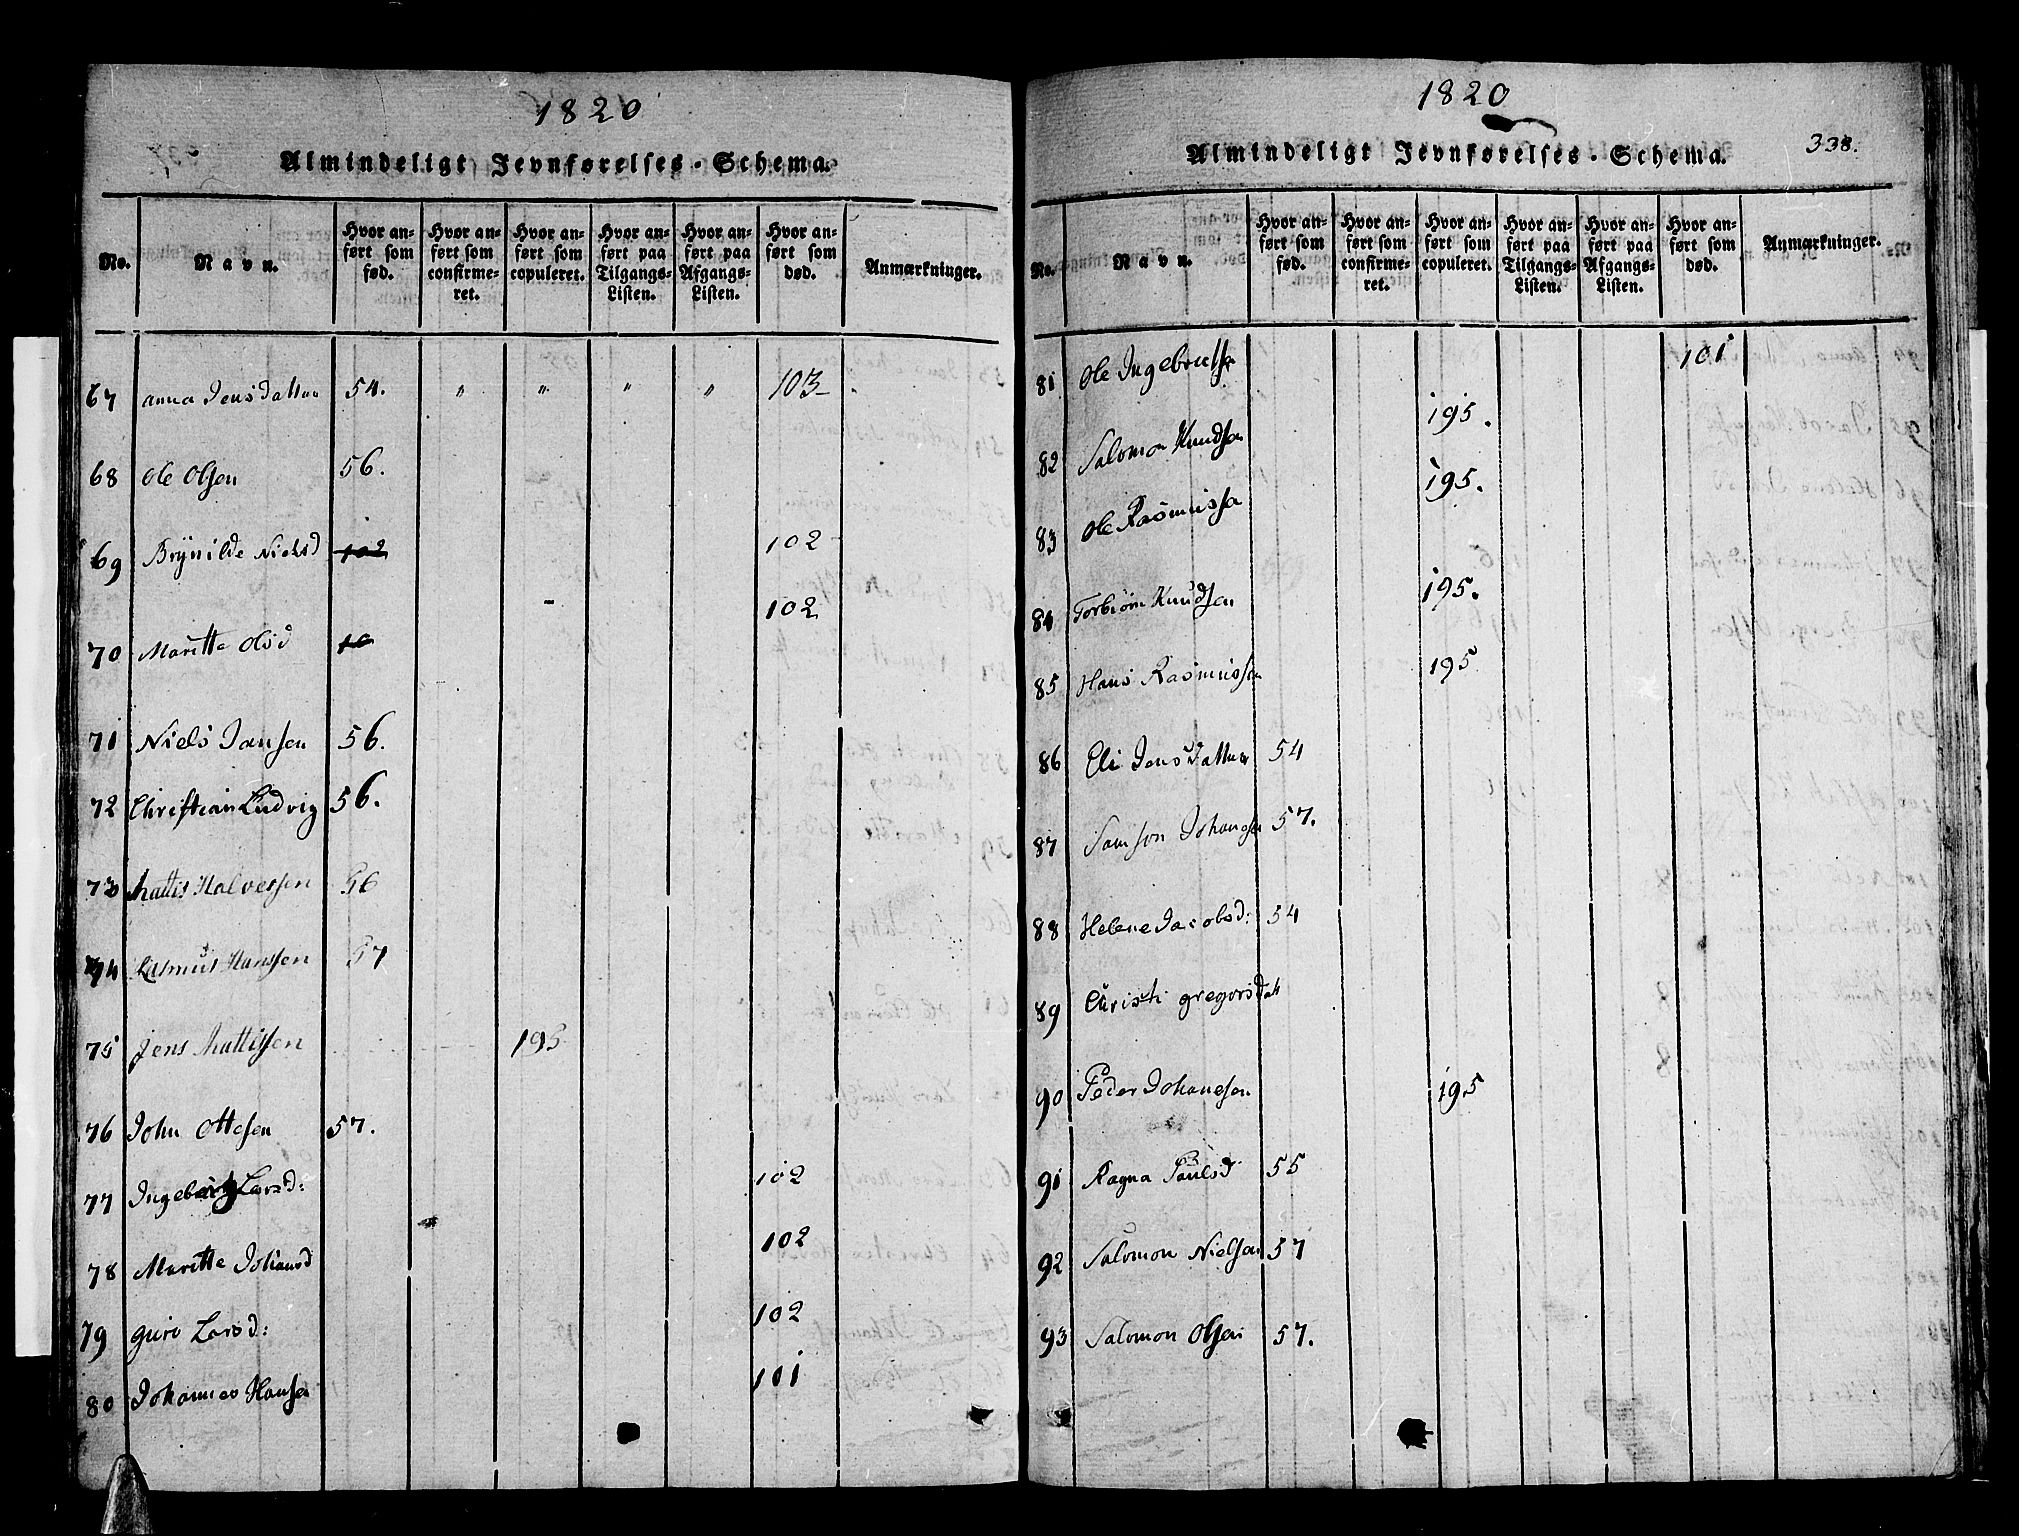 1820
Almindeligt Jevnførelses-Schema.
No. Navn. Hvor anført som fød. Hvor anført som confirmeret. Hvor anført som copuleret. Hvor anført paa Tilgangs-Listen. Hvor anført paa Afgangs-Listen. Hvor anført som død. Anmærkninger.
67 anna Jens Datter 54. " " " " 103
68 Ole Olsen 56.
69 Brynilde Nielsd 102 102
70 Maritte Olsd 10 102
71 Niels Jansen 56.
72 Christian Ludvig 56.
73 Mattis Halversen 56
74 Rasmus Hanssen 57
75 Jens Mattissen 195
76 John Ottesen 57.
77 Ingeborg Larsd: 102
78 Maritte Johansd 102
79 guro Larsd: 102
80 Johannes Hansen 101
1820
338.
Almindeligt Jevnførelses-Schema.
No. Navn. Hvor anført som fød. Hvor anført som confirmeret. Hvor anført som copuleret. Hvor anført paa Tilgangs-Listen. Hvor anført paa Afgangs-Listen. Hvor anført som død. Anmærkninger.
81 Ole Ingebretsen 101
82 Salomon Knudsen 195.
83 Ole Rasmussen 195.
84 Torbiørn Knudsen 195.
85 Hans Rasmussen 195
86 Eli Jens Datter 54
87 Samson Johansen 57.
88 Helene Jacobsd: 54
89 Christi gregorsdatt
90 Peder Johanesen 195
91 Ragna Paulsd 55
92 Salomon Nielsen 57
93 Salomon Olsen 57.